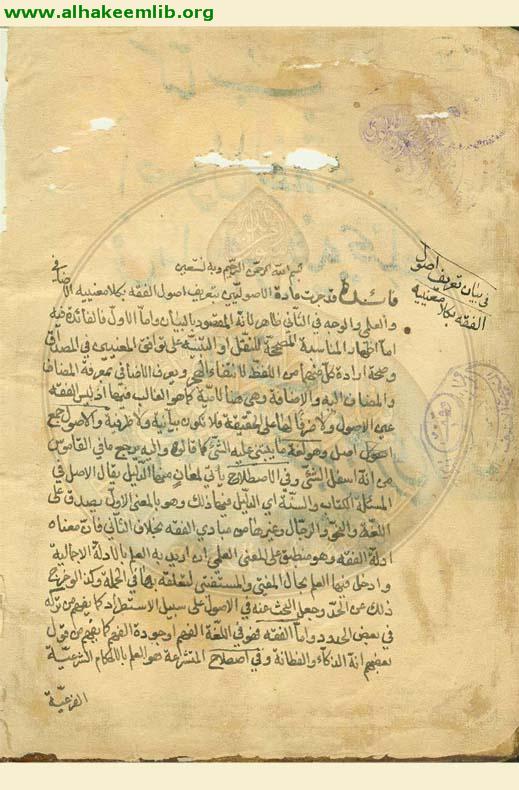 www.alhakeemlib.org
في بيان تعريف اصول
الفقه بكلا معنييه
بسم الله الرحمن الرحيم وبه نستعين
فائدة قد جرت عادة الاصوليين بتعريف اصول الفقه بكلا معنييه الاضافي
والعلمي والوجه في الثاني ظاهر لانه المقصود بالبيان واما الاول فالفائدة فيه
اما اظهار المناسبة المصححة للنقل او التنبيه على توافق المعنيين في المصداق
وصحة ارادة كل منهما من اللفظ ويعرف الاضافي بمعرفة المضاف
والمضاف اليه والاضافة وهي هنا لامية كما هو الغالب فيها اذ ليس الفقه
عين الاصول ولا ظرفا لها على الحقيقة فلا تكون بيانية ولا ظرفية والاصول جمع
اصل وهو لغة ما يبتنى عليه الشئ كما قالوه واليه يرجع ما في القاموس
من انه اسفل الشئ وفي الاصطلاح يأتي لمعان منها الدليل يقال الاصل في
المسئلة الكتاب والسنة اي الدليل فيها ذلك وهو بالمعنى الاول يصدق على
اللغة والنحو والرجال وغيرها من مبادي الفقه بخلاف الثاني فان معناه
ادلة الفقه وهو منطبق على المعنى العلمي ان اريد به العلم بالادلة الاجمالية
وادخل فيها العلم بحال المفتي والمستفتي لتعلقه بها في الجملة وكذا لو خرج
ذلك من الحد وجعل البحث عنه في الاصول على سبيل الاستطراد كما يفهم من تركه
في بعض الحدود واما الفقه فهو في اللغة الفهم وجودة الفهم كما يفهم من قول
بعضهم انه الذكاء والفطانة وفي اصطلاح المتشرعة هو العلم بالاحكام الشرعية
الفرعية